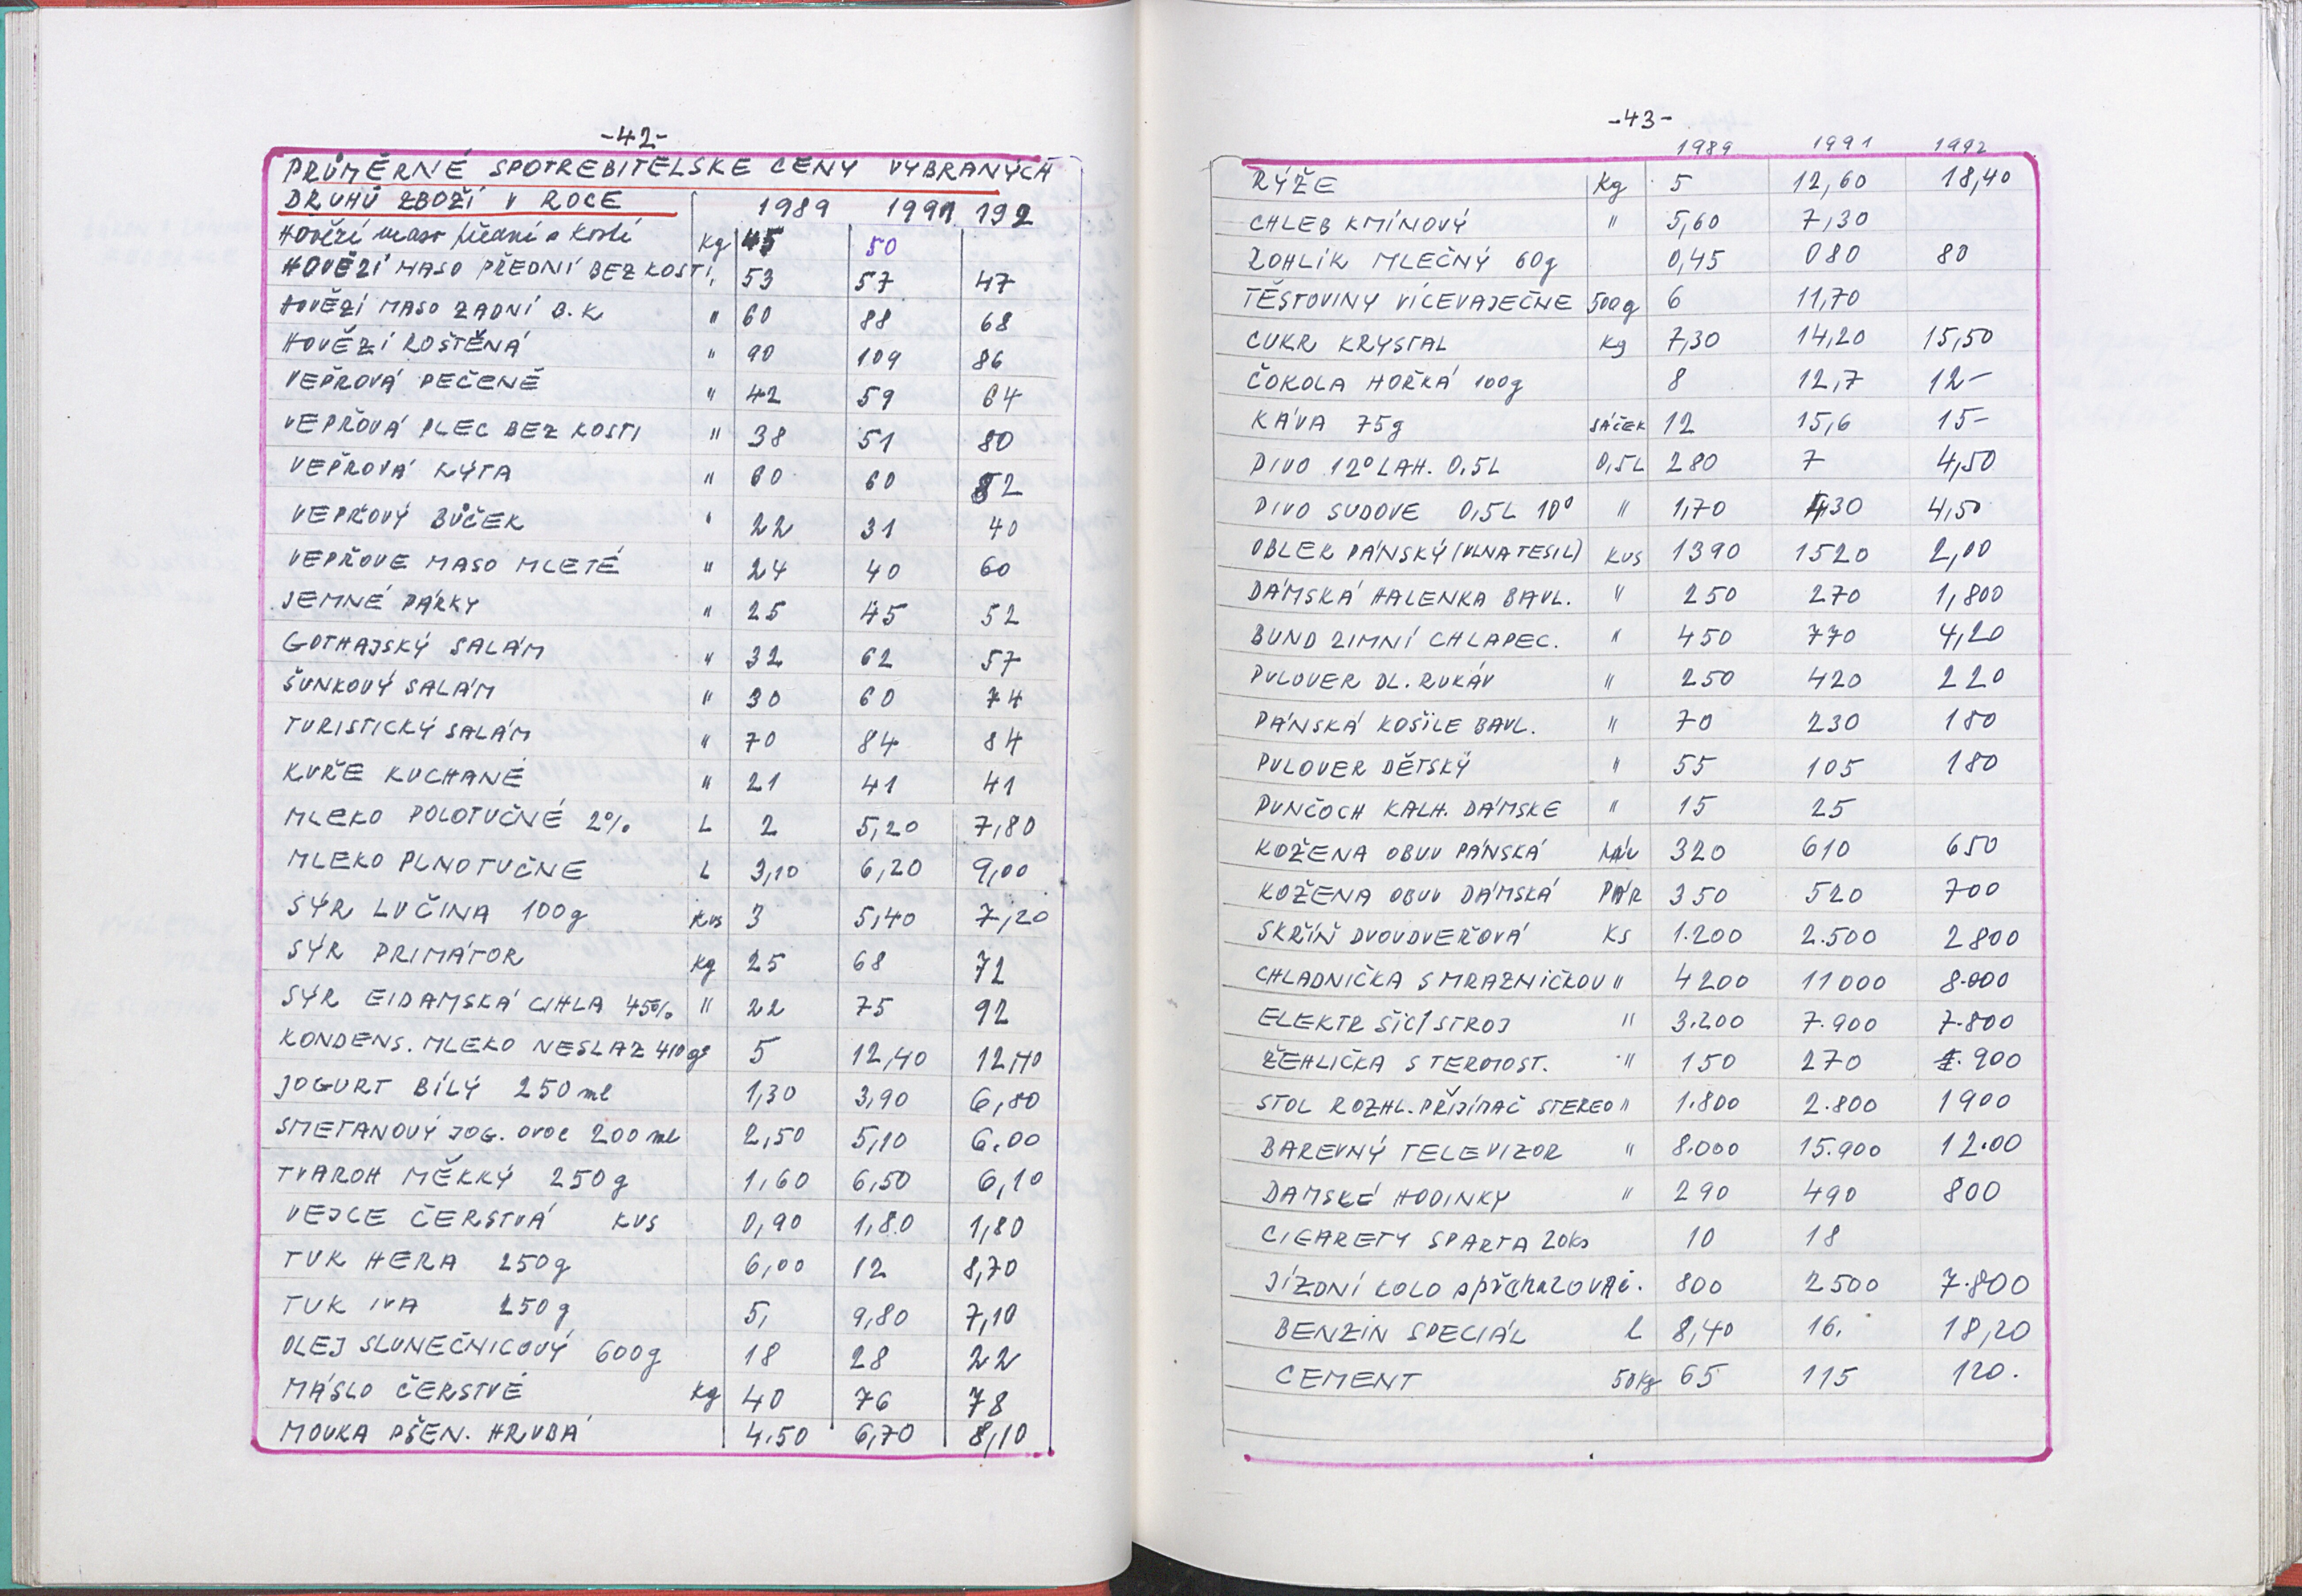 -42-
PRŮMĚRNÉ SPOTREBITELSKE CENY VYBRANÝCH
DRUHŮ ZBOŽÍ V ROCE 1989 1991 192
Hovězí maso přední s kostí kg 45 50
HOVĚZÍ MASO PŘEDNÍ BEZ KOSTI " 53 57 47
HOVĚZÍ MASO ZADNÍ B.K " 60 88 68
HOVĚZÍ ROŠTĚNÁ " 90 109 86
VEPŘOVÁ PEČENĚ " 42 59 64
VEPŘOVÁ PLEC BEZ KOSTI " 38 51 80
VEPŘOVÁ KÝTA " 60 60 82
VEPŘOVÝ BŮČEK " 22 31 40
VEPŘOVE MASO MLETÉ " 24 40 60
JEMNÉ PÁRKY " 25 45 52
GOTHAJSKÝ SALÁM " 32 62 57
ŠUNKOVÝ SALÁM " 30 60 74
TURISTICKÝ SALÁM " 70 84 84
KUŘE KUCHANÉ " 21 41 41
MLEKO POLOTUČNÉ 2% L 2 5,20 7,80
MLEKO PLNOTUČNE L 3,10 6,20 9,00
SÝR LUČINA 100g kus 3 5,40 7,20
SÝR PRIMÁTOR kg 25 68 72
SÝR EIDAMSKÁ CIHLA 45% " 22 75 92
KONDENS. MLEKO NESLAZ 410g 5 12,40 12,40
JOGURT BÍLÝ 250 ml 1,30 3,90 6,80
SMETANOVÝ JOG. OVOC 200 ml 2,50 5,10 6.00
TVAROH MĚKKÝ 250g 1,60 6,50 6,10
VEJCE ČERSTVÁ KUS 0,90 1,80 1,80
TUK HERA 250g 6,00 12 8,70
TUK IVA 250g 5, 9,80 7,10
OLEJ SLUNEČNICOVÝ 600g 18 28 22
MÁSLO ČERSTVÉ kg 40 76 78
MOUKA PŠEN. HRUBÁ 4.50 6,70 8,10
-43-
1989 1991 1992
RÝŽE Kg 5 12,60 18,40
CHLEB KMÍNOVÝ " 5,60 7,30
ROHLÍK MLEČNÝ 60g 0,45 080 80
TĚSTOVINY VÍCEVAJEČNE 500g 6 11,70
CUKR KRYSTAL kg 7,30 14,20 15,50
ČOKOLA HOŘKÁ 100g 8 12,7 12-
KÁVA 75g SÁČEK 12 15,6 15-
PIVO 12° LAH. 0,5L 0,5L 280 7 4,50
PIVO SUDOVE 0,5L 10° " 1,70 4,30 4,50
OBLEK PÁNSKÝ (VLNA TESIL) KUS 1390 1520 2,00
DÁMSKÁ HALENKA BAVL. " 250 270 1,800
BUND ZIMNÍ CHLAPEC. " 450 770 4,20
PULOVER DL. RUKÁV " 250 420 220
PÁNSKÁ KOŠILE BAVL. " 70 230 180
PULOVER DĚTSKÝ " 55 105 180
PUNČOCH KALH. DÁMSKE " 15 25
KOŽENA OBUV PÁNSKÁ PÁR 320 610 650
KOŽENA OBUV DÁMSKÁ PÁR 350 520 700
SKŘÍŇ DVOUDVEŘOVÁ KS 1.200 2.500 2800
CHLADNIČKA S MRAZNIČKOU " 4200 11000 8.000
ELEKTR ŠICÍ STROJ " 3.200 7.900 7.800
ŽEHLIČKA S TERMOST. " 150 270 1.900
STOL ROZHL. PŘIJÍMAČ STEREO " 1.800 2.800 1900
BAREVNÝ TELEVIZOR " 8.000 15.900 12.00
DAMSKÉ HODINKY " 290 490 800
CIGARETY SPARTA 20ks 10 18
JÍZDNÍ KOLO 800 2500 7.800
BENZIN SPECIÁL l 8,40 16. 18,20
CEMENT 50kg 65 115 120.